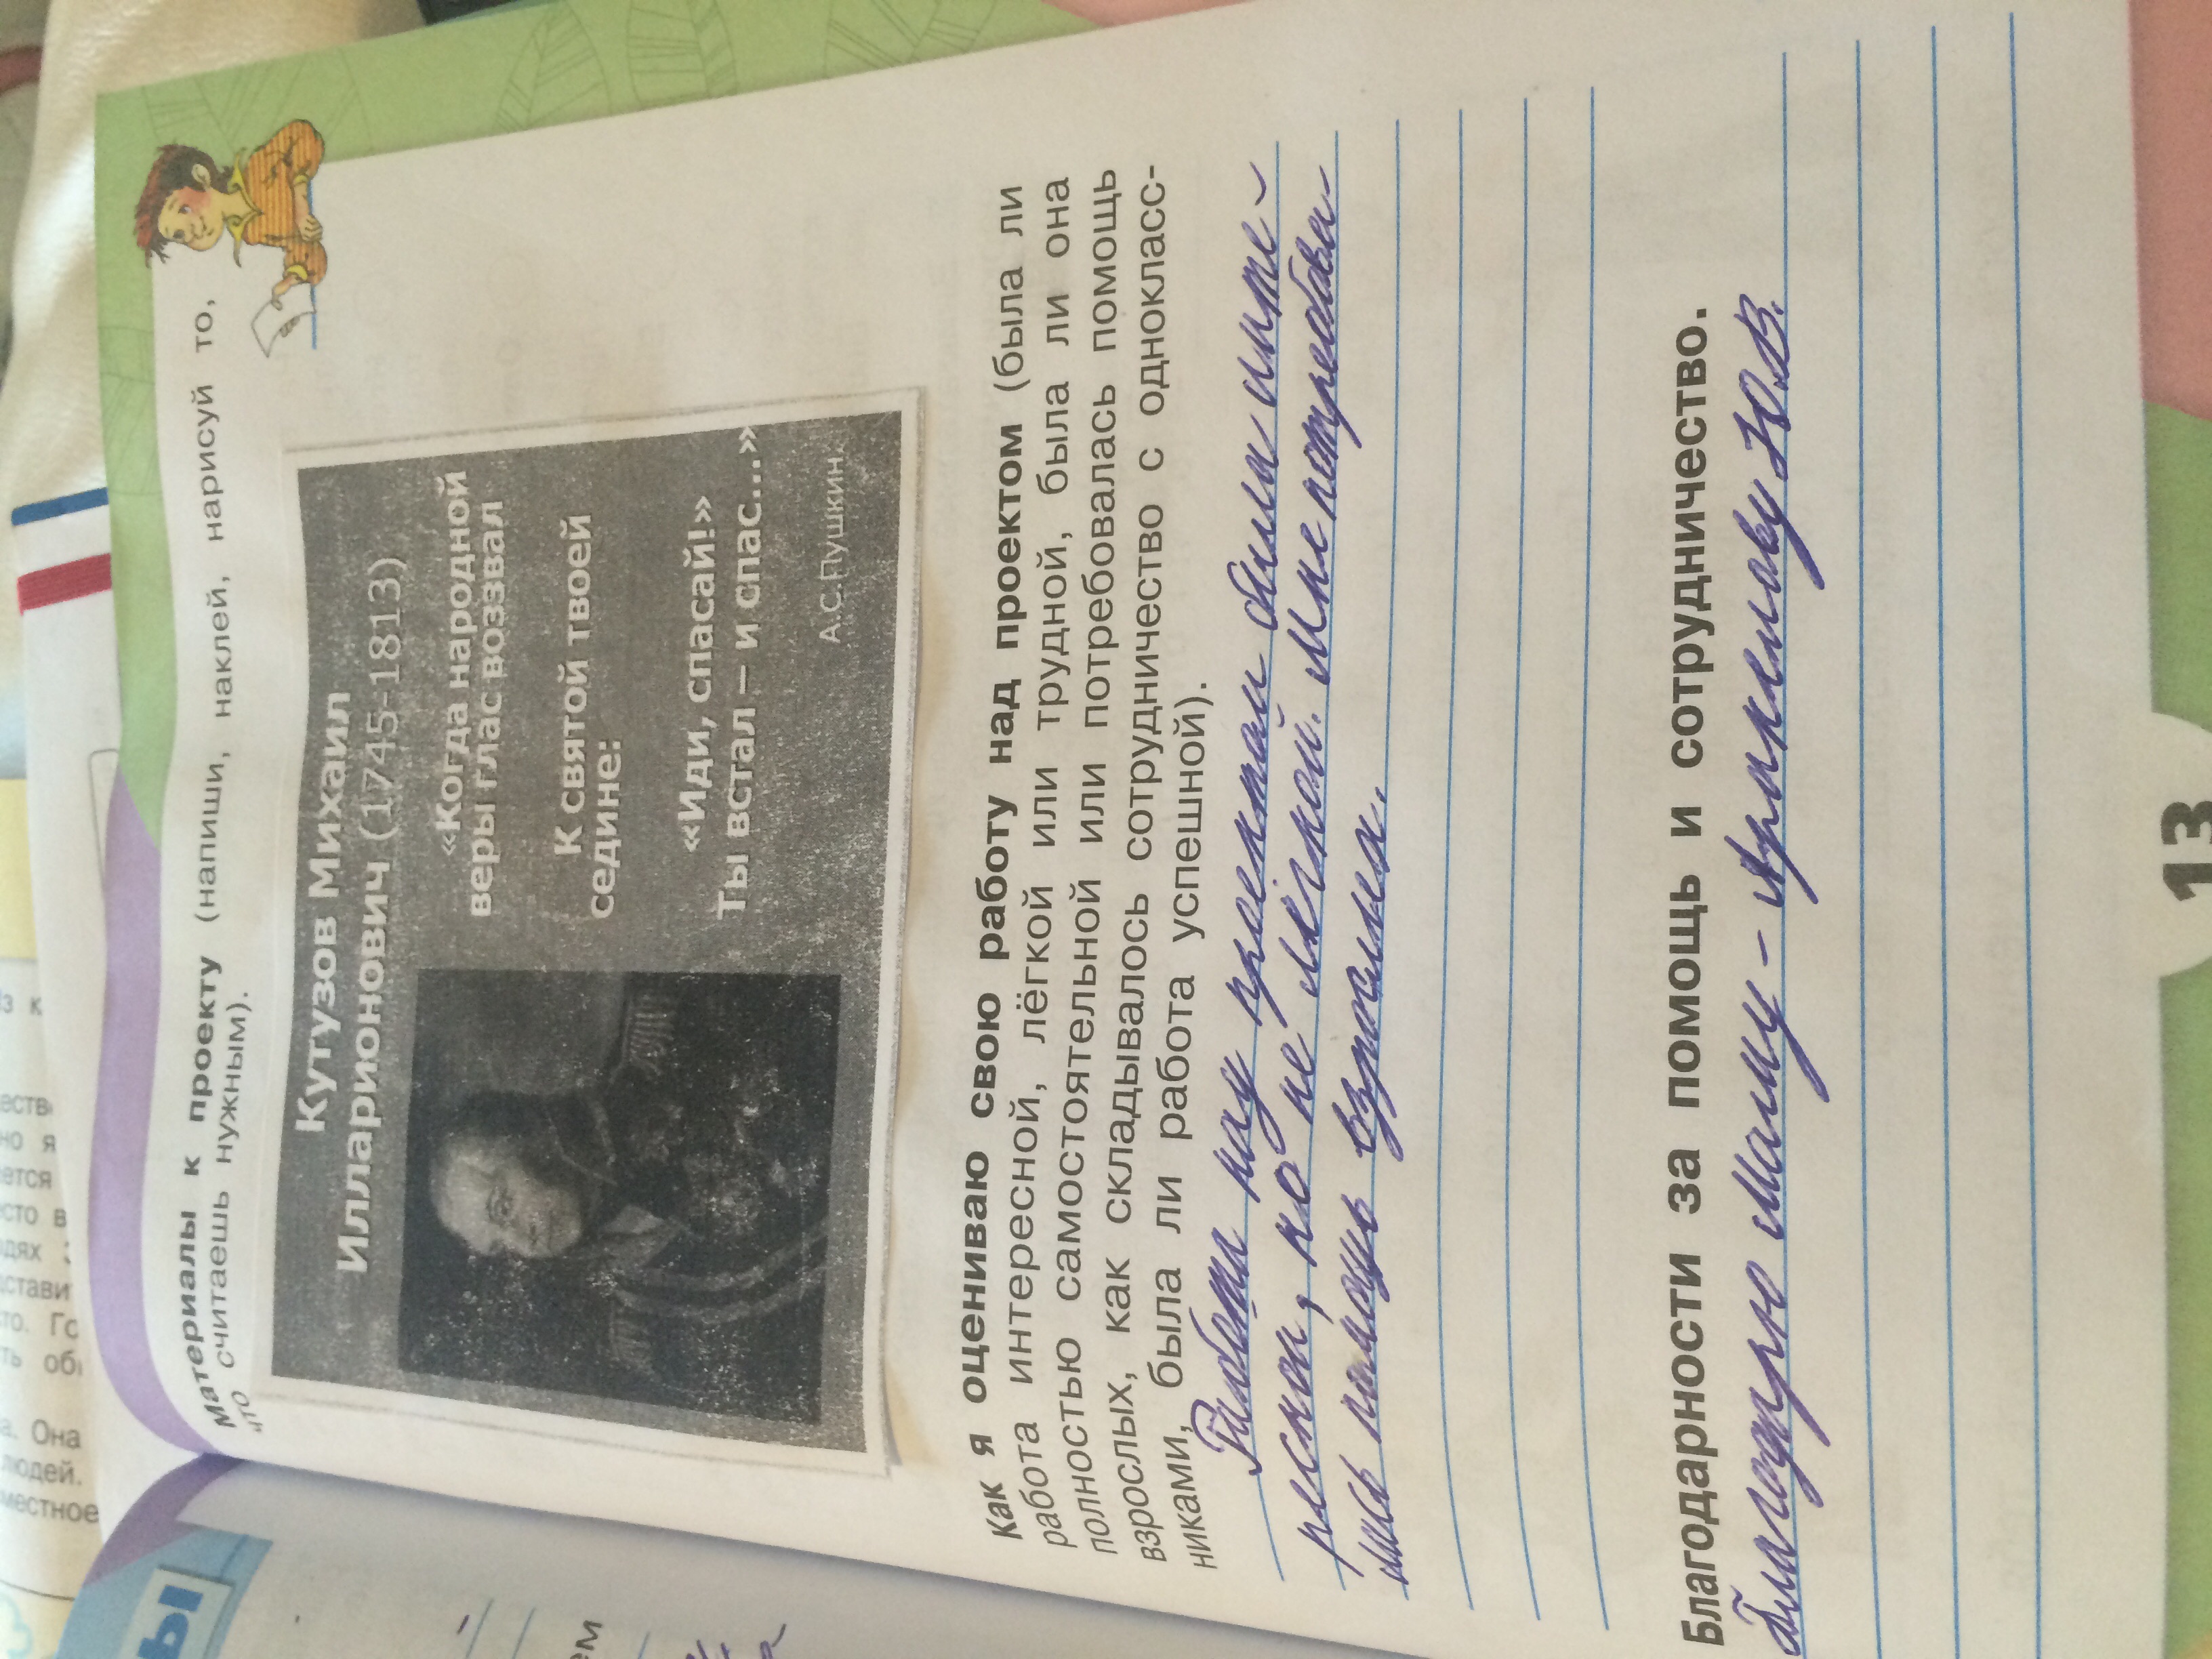 Материалы к проекту (напиши, наклей, нарисуй то,
что считаешь нужным).
Кутузов Михаил
Илларионович (1745-1813)
«Когда народной
веры глас воззвал
К святой твоей
седине:
«Иди, спасай!»
Ты встал – и спас...»
А.С.Пушкин.
Как я оцениваю свою работу над проектом (была ли
работа интересной, лёгкой или трудной, была ли она
полностью самостоятельной или потребовалась помощь
взрослых, как складывалось сотрудничество с одноклас-
никами, была ли работа успешной).
Работа над проектом была инте-
ресная, но не лёгкой. Мне потребова-
лась помощь взрослых.
Благодарности за помощь и сотрудничество.
Благодарю маму - Ю.В.
13
ры
Она
людей.
местное